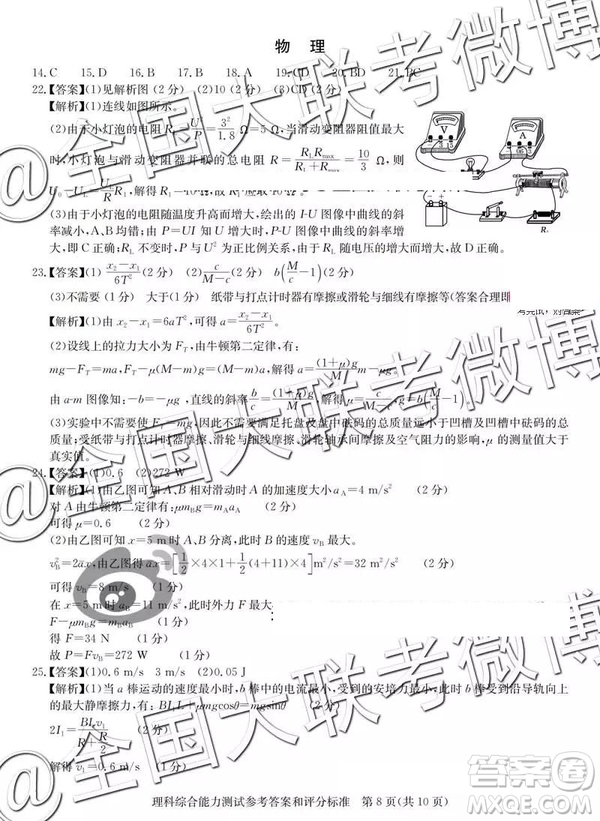 物 理
14. C 15. D 16. B 17. B 18. A 19. CD 20. BD 21. BC
22.【答案】(1)见解析图 (2)10 (2分) (3)CD (2分)
【解析】(1)连线如图所示。
(2)由于小灯泡的电阻 R_L=U²/P=3²/1.8 Ω=5 Ω,当滑动变阻器阻值最大
时,小灯泡与滑动变阻器并联的总电阻 R=R_L R_max/(R_L+R_max)=10/3 Ω,则
(3)由于小灯泡的电阻随温度升高而增大,绘出的 I-U 图像中曲线的斜
率减小,A、B均错;由 P=UI 知 U 增大时,P-U 图像中曲线的斜率增
大,即 C 正确;R_L 不变时,P 与 U² 为正比例关系,由于 R_L 随电压的增大而增大,故 D 正确。
23.【答案】(1) (x₂-x₁)/6T² (2分) (2) c/(M-c) (2分) b(M/c-1) (2分)
(3)不需要(1分) 大于(1分) 纸带与打点计时器有摩擦或滑轮与细线有摩擦等(答案合理即
【解析】(1)由 x₂-x₁=6aT²,可得 a=(x₂-x₁)/6T²。
(2)设线上的拉力大小为 F_T,由牛顿第二定律,有:
mg-F_T=ma,F_T-μ(M-m)g=(M-m)a,解得 a=(1+μ)g/M m-μg
由 a-m 图像知:-b=-μg,直线的斜率 b/c=(1+μ)g/M,解得
(3)实验中不需要
质量;受纸带与打点计时器摩擦、滑轮与细线摩擦、滑轮轴承间摩擦及空气阻力的影响,μ的测量值大
于真实值。
24.【答案】(1)0.6 (2)272 W
【解析】(1)由乙图可知A、B相对滑动时A的加速度大小 a_A=4 m/s² (2分)
对A由牛顿第二定律有:μm_Bg=m_Aa_A (2分)
可得 μ=0.6 (2分)
(2)由乙图可知 x=5 m时A、B分离,此时B的速度 v_B最大。
v_B²=2ax,由乙图得 ax=[1/2×4×1+1/2(4+11)×4]m²/s²=32 m²/s² (2分)
可得 v_B=8 m/s (1分)
在 x=5 m时 a_B=11 m/s²,此时外力 F 最大
F-μm_Bg=m_Ba_B (1分)
得 F=34 N (1分)
故 P=Fv_B=272 W (1分)
25.【答案】(1)0.6 m/s 3 m/s (2)0.05 J
【解析】(1)当 a 棒运动的速度最小时,b棒中的电流最小,受到的安培力最小,此时b棒受到沿导轨向上
的最大静摩擦力,有:BI₁L+μmgcosθ=mgsinθ (2分)
2I₁=BLv₁/(R+R/2) (2分)
解得 v₁=0.6 m/s (1分)
理科综合能力测试参考答案和评分标准 第8页(共10页)
@全国大联考微博
@全国大联考微博
@全国大联考微博
答案圈